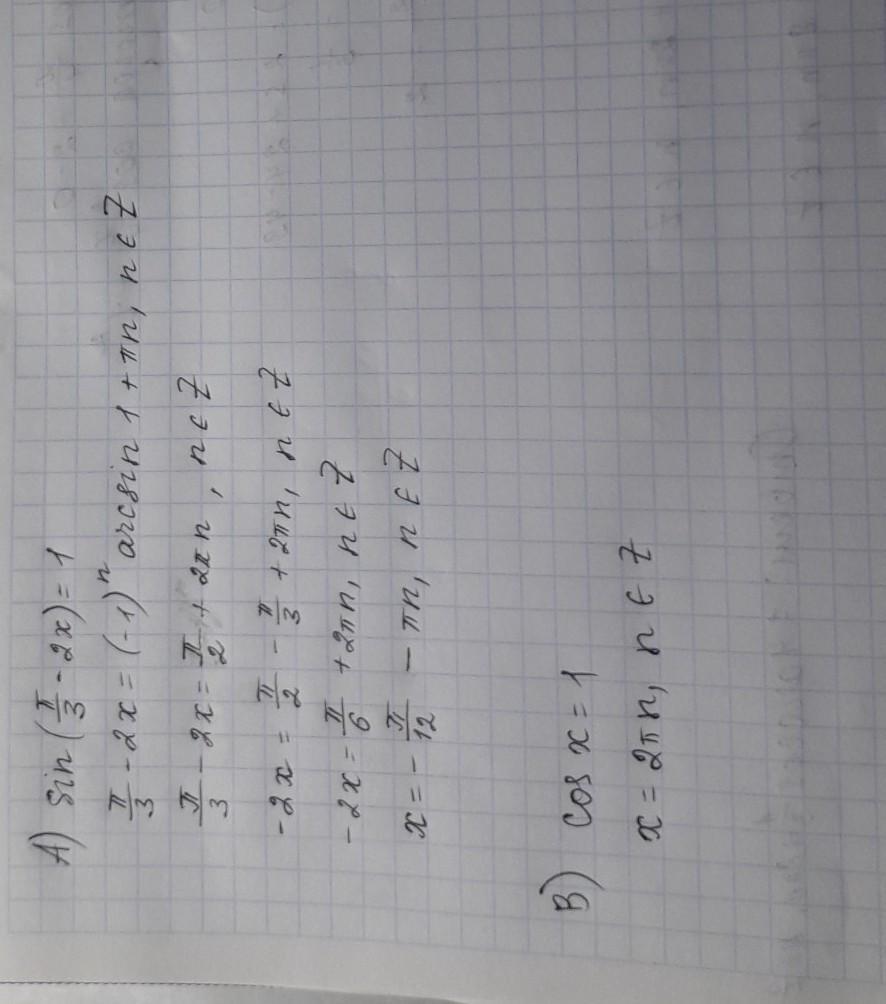 A) sin(π/3 - 2x) = 1
π/3 - 2x = (-1)ⁿ arcsin 1 + πn, n ∈ Z
π/3 - 2x = π/2 + 2πn, n ∈ Z
-2x = π/2 - π/3 + 2πn, n ∈ Z
-2x = π/6 + 2πn, n ∈ Z
x = -π/12 - πn, n ∈ Z
B) cos x = 1
x = 2πn, n ∈ Z